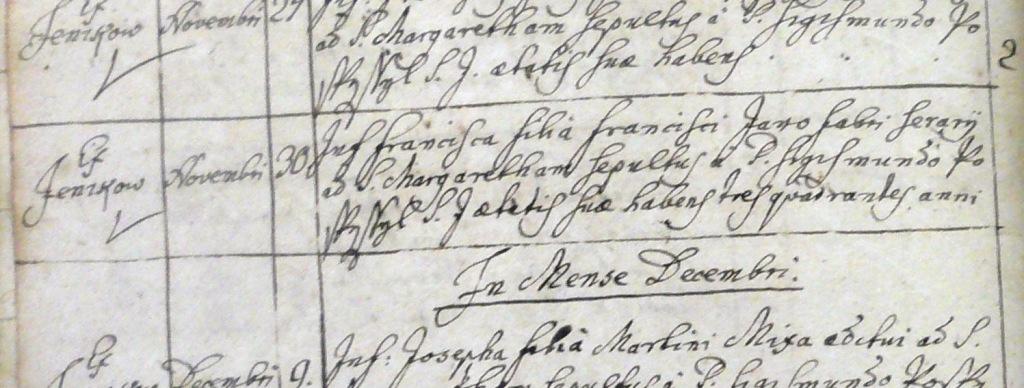 Ex
Jenikow Novembri 29
ad S. Margaretham sepultus à P. Sigismundo Po
spyssyl S. J. ætatis suæ habens
2
Ex
Jenikow Novembri 30
Inf Francisca filia Francisci Jawo fabri ferarij
ad S. Margaretham sepultus à P. Sigismundo Po
spyssyl S. J ætatis suæ habens tres quadrantes anni
In Mense Decembri.
Ex
Decembri 9.
Inf: Josepha filia Martini Mixa æditui ad S.
sepultus à P. Sigismundo